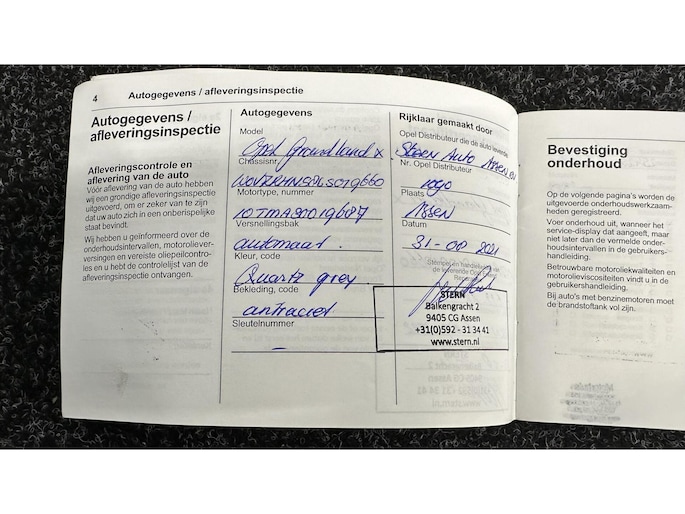 4 Autogegevens / afleveringsinspectie
Autogegevens /
afleveringsinspectie
Afleveringscontrole en
aflevering van de auto
Vóór aflevering van de auto hebben
wij een grondige afleveringsinspectie
uitgevoerd, om er zeker van te zijn
dat uw auto zich in een onberispelijke
staat bevindt.
Wij hebben u geïnformeerd over de
onderhoudsintervallen, motorolieverver-
singen en vereiste oliepeilcontro-
les en u hebt de controlelijst van de
afleveringsinspectie ontvangen.
Autogegevens
Model
Opel Grandland x
Chassisnr.
Motortype, nummer
Versnellingsbak
automaat.
Kleur, code
Quartz grey
Bekleding, code
antraciet
Sleutelnummer
-
Rijklaar gemaakt door
Opel Distributeur die de auto leverde
Stern Auto Assen
Nr. Opel Distributeur
Plaats
Assen
Datum
2021
STERN
Balkengracht 2
9405 CG Assen
+31(0)592 - 31 34 41
www.stern.nl
Bevestiging
onderhoud
Op de volgende pagina's worden de
uitgevoerde onderhoudswerkzaam-
heden geregistreerd.
Voer onderhoud uit, wanneer het
service-display dat aangeeft, maar
niet later dan de vermelde onder-
houdsintervallen in de gebruikers-
handleiding.
Betrouwbare motoroliekwaliteiten en
motorolieviscositeiten vindt u in de
gebruikershandleiding.
Bij auto's met benzinemotoren moet
de brandstoftank vol zijn.